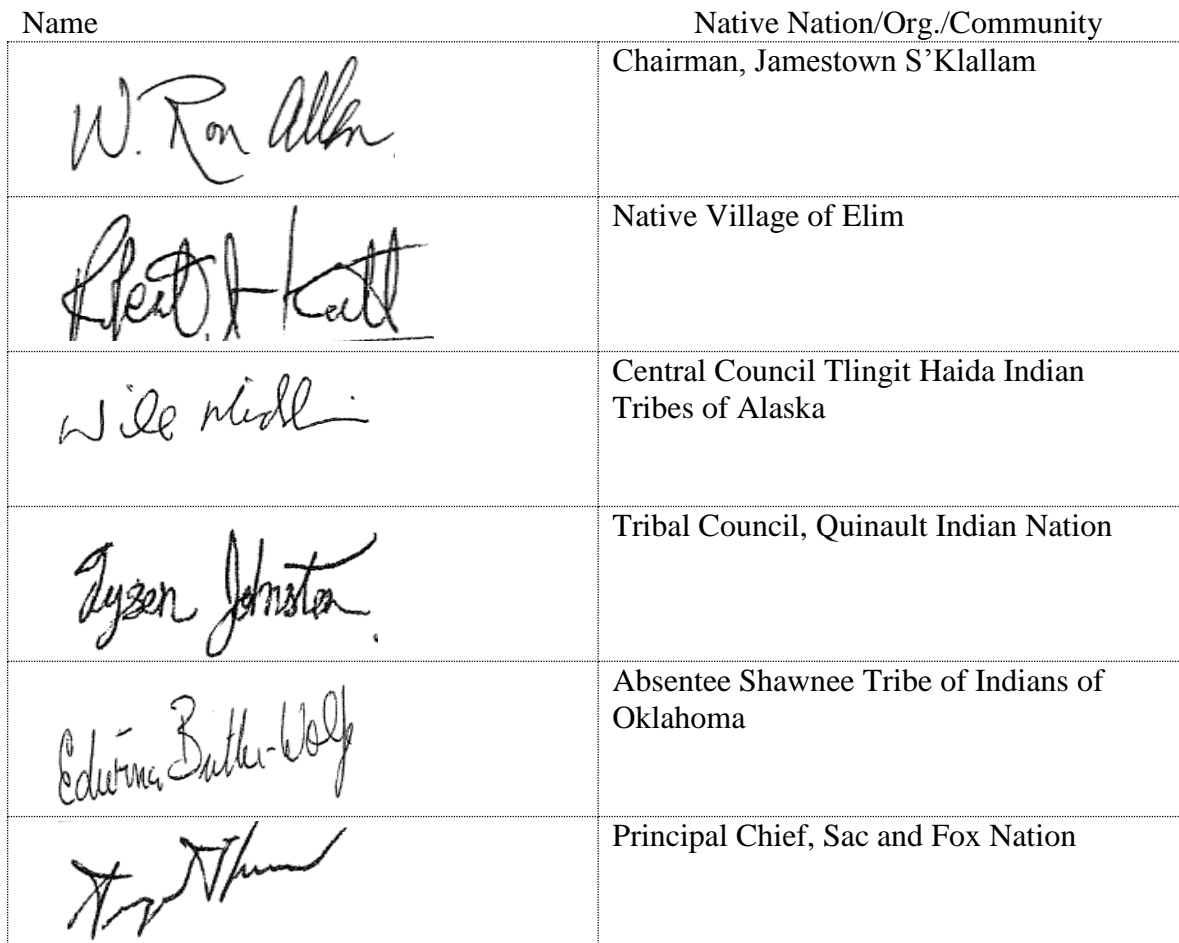 Name Native Nation/Org./Community
W. Ron Allen Chairman, Jamestown S’Klallam
Native Village of Elim
Central Council Tlingit Haida Indian
Tribes of Alaska
Tyson Johnston Tribal Council, Quinault Indian Nation
Edwina Butler-Wolfe Absentee Shawnee Tribe of Indians of
Oklahoma
Principal Chief, Sac and Fox Nation